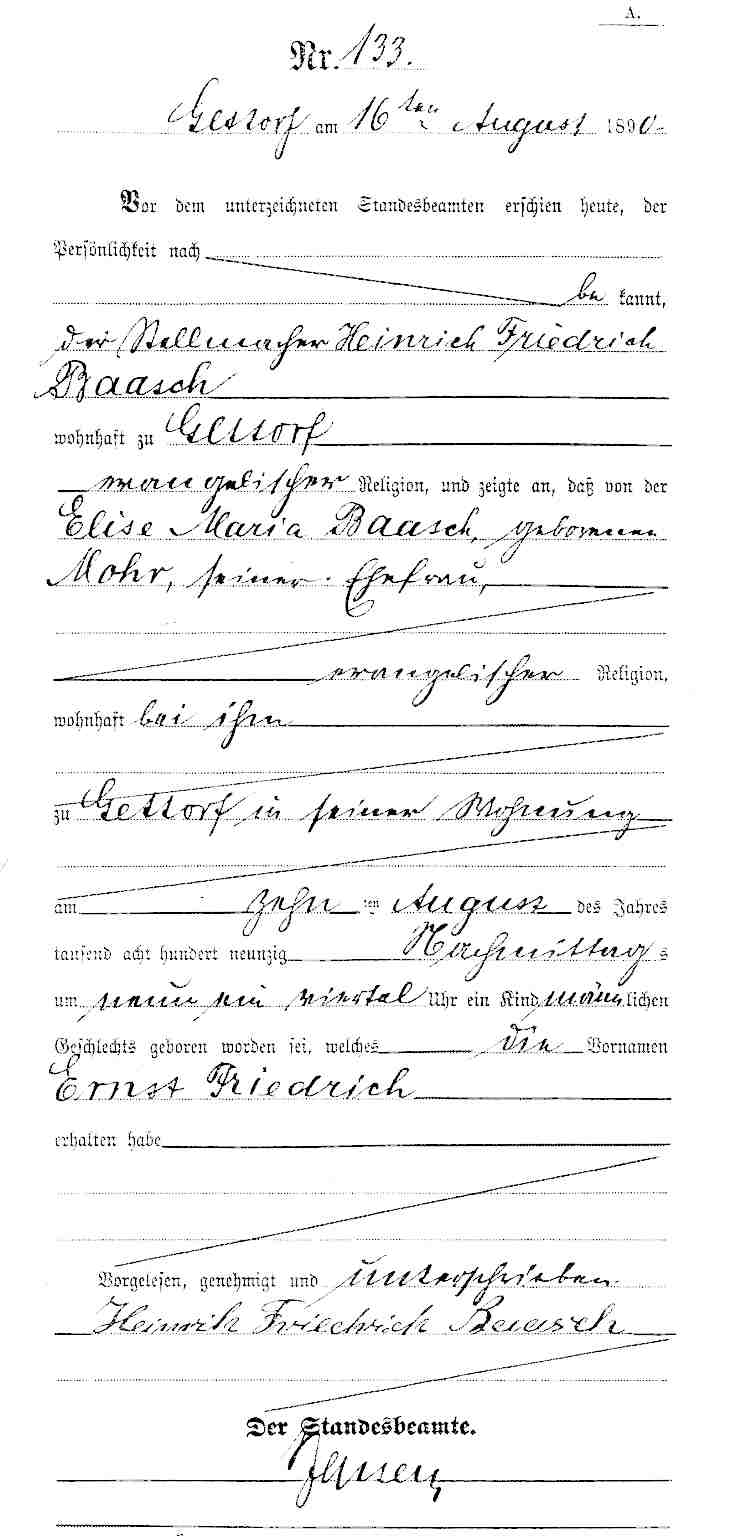 A.
Nr. 133.
Gettorf am 16ten August 1890.
Vor dem unterzeichneten Standesbeamten erschien heute, der
Persönlichkeit nach
be kannt,
der Stellmacher Heinrich Friedrich
Baasch
wohnhaft zu Gettorf
evangelischer Religion, und zeigte an, daß von der
Elise Maria Baasch, geborenen
Mohr, seiner Ehefrau,
evangelischer Religion,
wohnhaft bei ihm
zu Gettorf in seiner Wohnung
am zehn ten August des Jahres
tausend acht hundert neunzig Nachmittag s
um neun ein viertel Uhr ein Kind männlichen
Geschlechts geboren worden sei, welches die Vornamen
Ernst Friedrich
erhalten habe
Vorgelesen, genehmigt und unterschrieben
Heinrich Friedrich Baasch
Der Standesbeamte.
Jensen